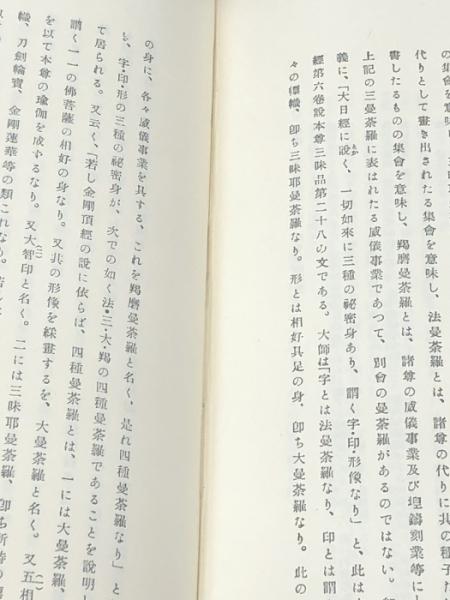 の集會を意味し
代りとして畫き出されたる集會を意味し、法曼荼羅とは、諸尊の代りに其の種子た
書したるものの集會を意味し、羯磨曼荼羅とは、諸尊の威儀事業及び埿鑄刻業等に
上記の三曼荼羅に表はれたる威儀事業であつて、別會の曼荼羅があるのではない。
義に、「大日經に説く、一切如來に三種の祕密身あり、謂く字・印・形像なり」と、此は
經第六卷説本尊三昧品第二十八の文である。大師は「字とは法曼荼羅なり、印とは謂
々の幖幟、卽ち三昧耶曼荼羅なり。形とは相好具足の身、卽ち大曼荼羅なり。此の
の身に、各々威儀事業を具する、これを羯磨曼荼羅と名く、是れ四種曼荼羅なり」と
も、字・印・形の三種の祕密身が、次での如く法・三・大・羯の四種曼荼羅であることを説明し
て居られる。又云く、「若し金剛頂經の説に依らば、四種曼荼羅とは、一には大曼荼羅、
謂く一一の佛菩薩の相好の身なり。又其の形像を綵畫するを、大曼荼羅と名く。又五相
を以て本尊の瑜伽を成ずるなり。又大智印と名く。二には三昧耶曼荼羅、卽ち所持の
幟、刀劍輪寶、金剛蓮華等の類これなり。